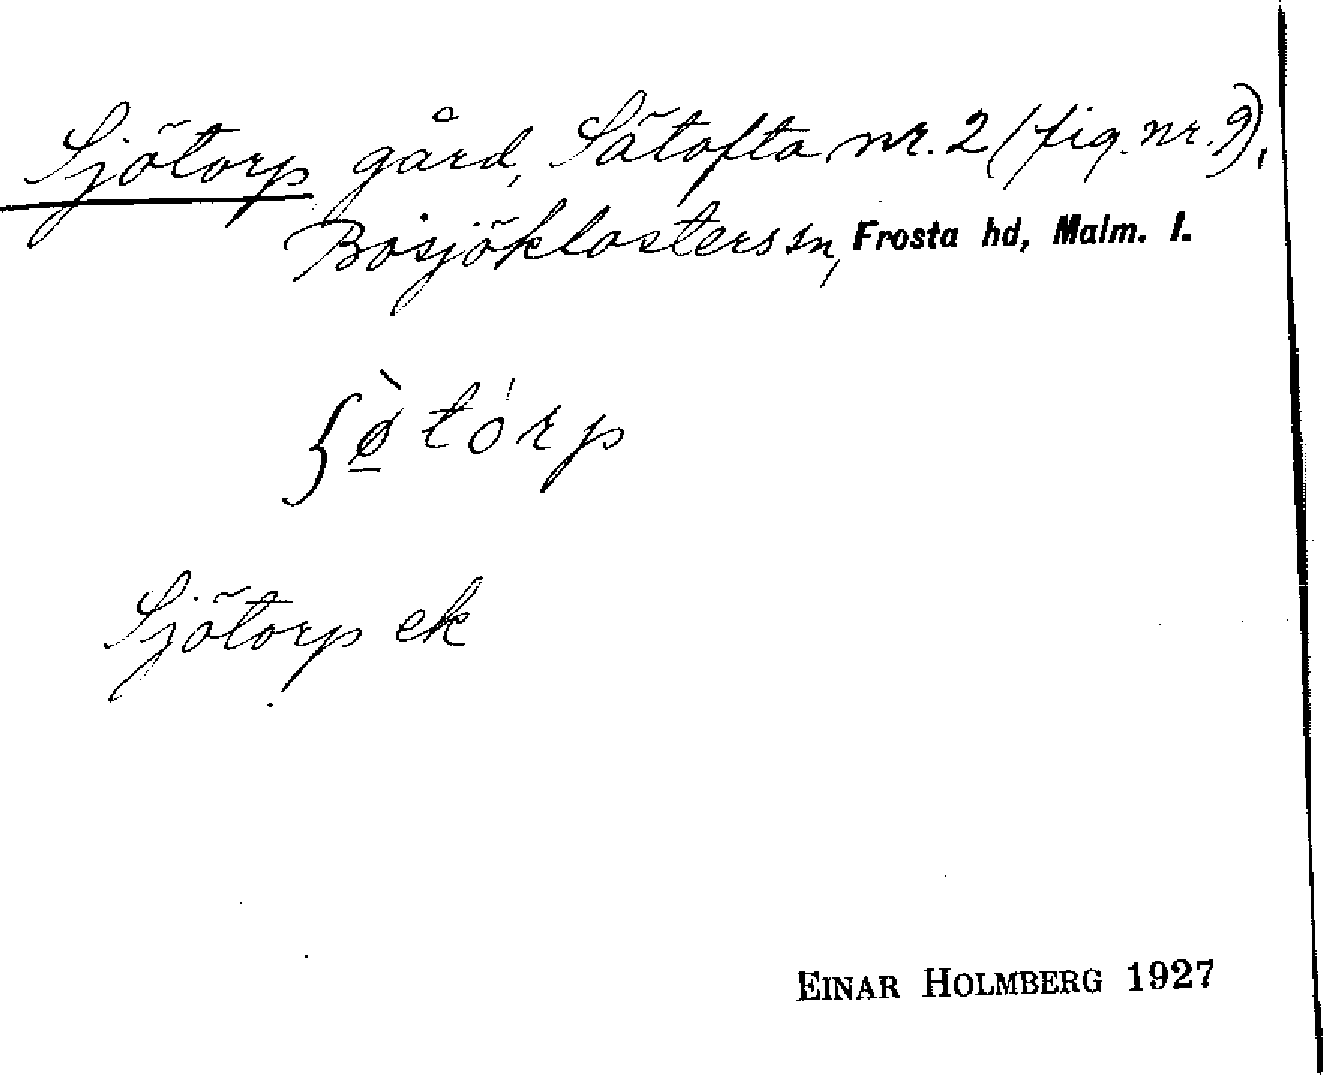 Sjötorp gård, Sätofta nr. 2 (fig. nr. 9),
Bosjöklosters sn, Frosta hd, Malm. l.
ʃø̱̀tórp
Sjötorp ek
EINAR HOLMBERG 1927